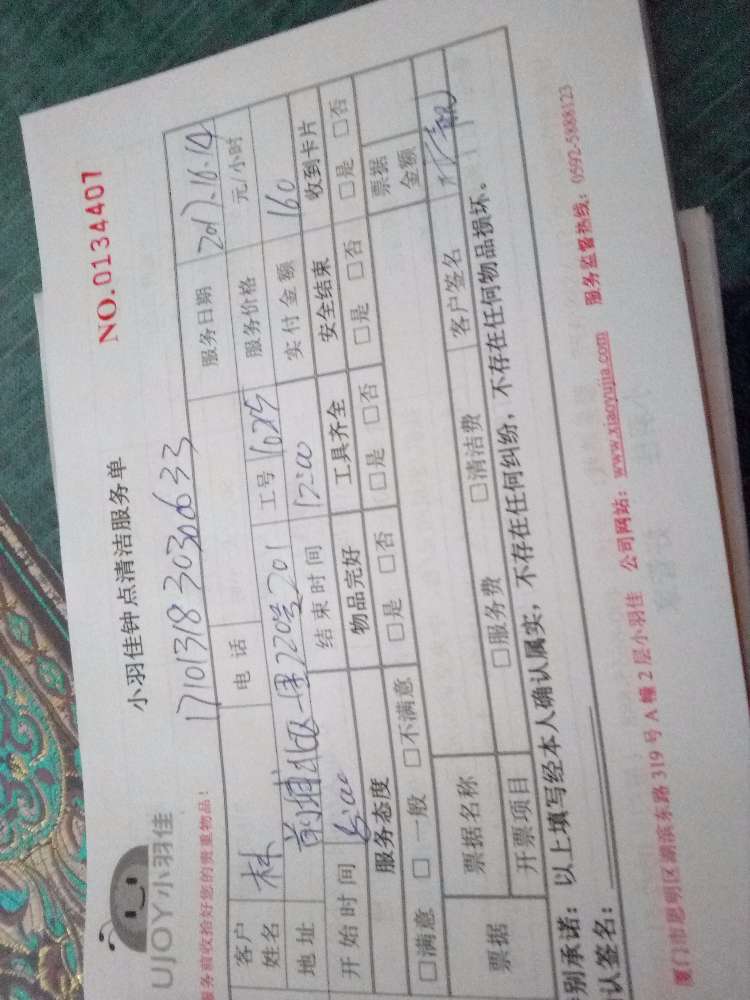 UJOY小羽佳
小羽佳钟点清洁服务单
NO.0134407
服务前收拾好您的贵重物品!
17101318303030633
客户姓名 林 电话 服务日期 2017.10.14
地址 工号 1625 服务价格 元/小时
开始时间 8:00 结束时间 12:00 实付金额 160
服务态度 物品完好 工具齐全 安全结束 收到卡片
□满意 □一般 □不满意 □是 □否 □是 □否 □是 □否 □是 □否
票据 票据名称 票据金额
开票项目 □服务费 □清洁费 客户签名
别承诺：以上填写经本人确认属实，不存在任何纠纷，不存在任何物品损坏。
认签名：
厦门市思明区湖滨东路319号A幢2层小羽佳 公司网站：www.xiaoyujia.com 服务监督热线：0592-5888123